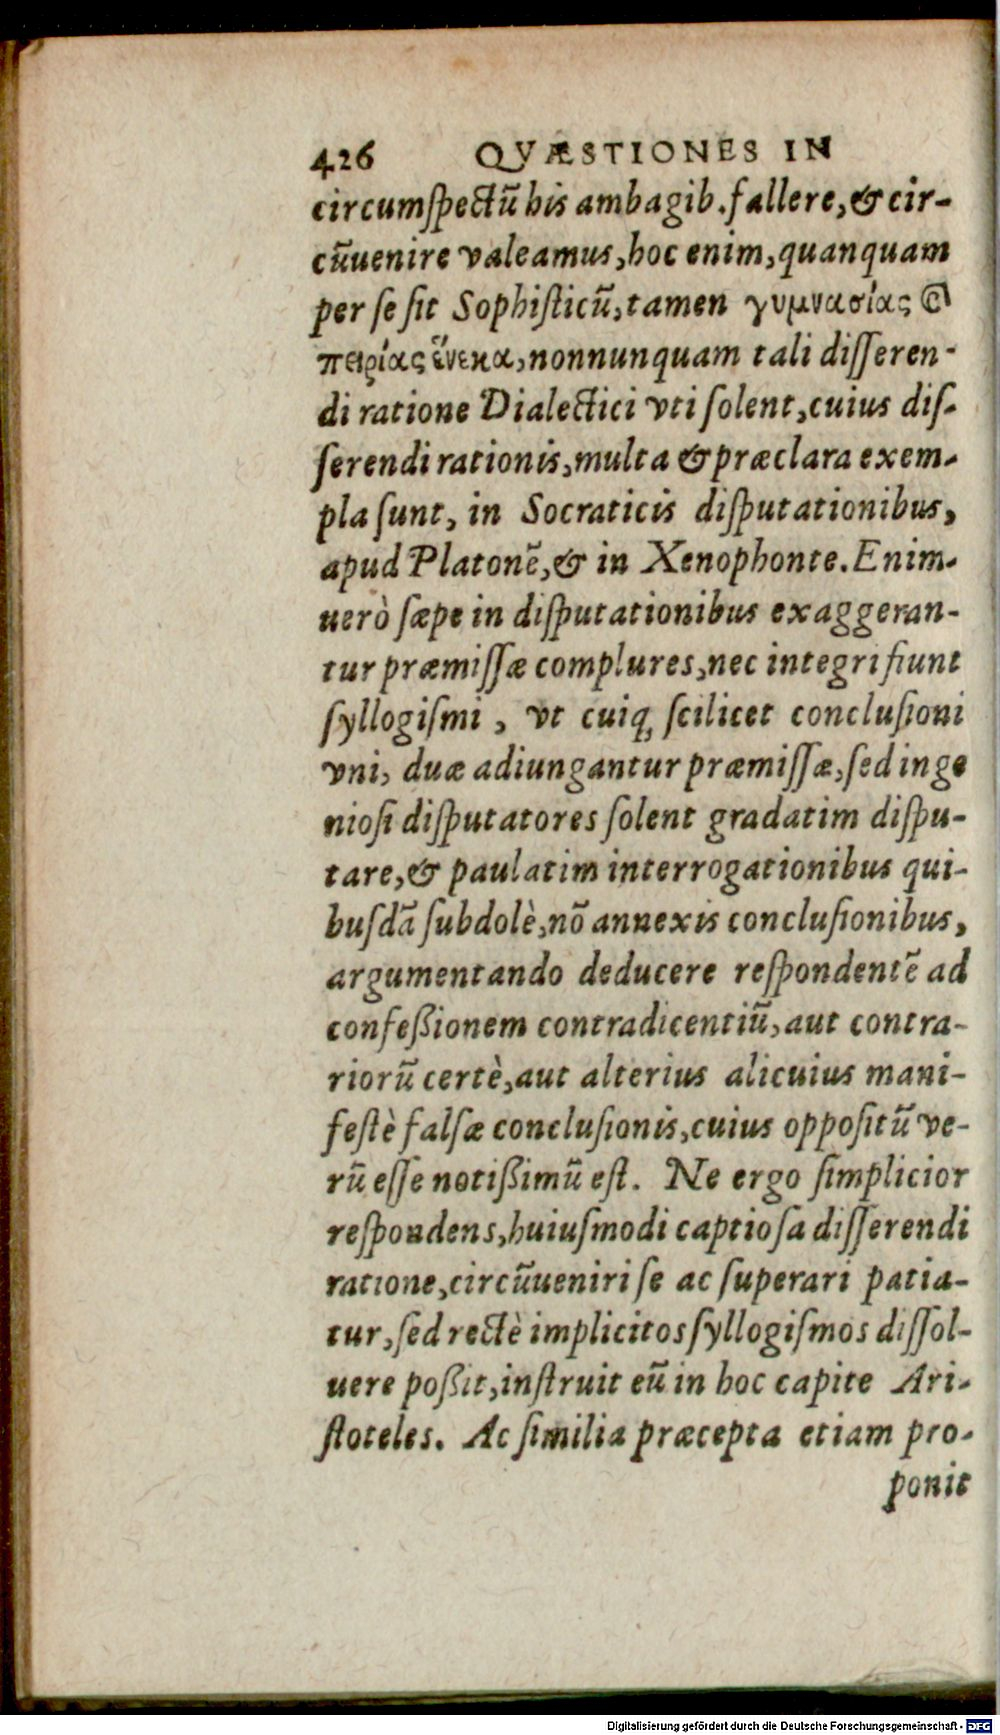 426 QVÆSTIONES IN
circumſpectū his ambagib. fallere, & cir-
cūuenire valeamus, hoc enim, quanquam
per ſe ſit Sophiſticū, tamen γυμνασίας
πειρίας ἕνεκα, nonnunquam tali diſſeren-
di ratione Dialectici vti ſolent, cuius diſ-
ſerendi rationis, multa & præclara exem-
pla ſunt, in Socraticis diſputationibus,
apud Platonē, & in Xenophonte. Enim-
uerò ſæpe in diſputationibus exaggeran-
tur præmiſſæ complures, nec integri fiunt
ſyllogiſmi, vt cuiq; ſcilicet concluſioni
vni, duæ adiungantur præmiſſæ, ſed inge
nioſi diſputatores ſolent gradatim diſpu-
tare, & paulatim interrogationibus qui-
buſdā ſubdolè, nō annexis concluſionibus,
argumentando deducere reſpondentē ad
confeßionem contradicentiū, aut contra-
riorū certè, aut alterius alicuius mani-
feſtè falſæ concluſionis, cuius oppoſitū ve-
rū eſſe notißimū eſt. Ne ergo ſimplicior
reſpondens, huiuſmodi captioſa diſſerendi
ratione, circūueniri ſe ac ſuperari patia-
tur, ſed rectè implicitos ſyllogiſmos diſſol-
uere poßit, inſtruit eū in hoc capite Ari-
ſtoteles. Ac ſimilia præcepta etiam pro-
ponit
Digitalisierung gefördert durch die Deutsche Forschungsgemeinschaft - DFG